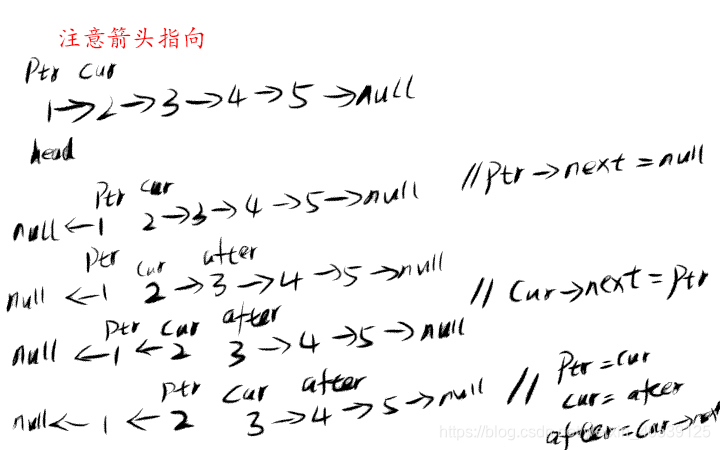 注意箭头指向
Ptr cur
1→2→3→4→5→null
head
Ptr cur
null←1 2→3→4→5→null //Ptr→next=null
Ptr cur after
null←1 2→3→4→5→null
// Cur→next=Ptr
Ptr cur after
null←1←2 3→4→5→null
Ptr cur after
null←1←2 3→4→5→null //
Ptr=cur
cur=after
after=cur→next